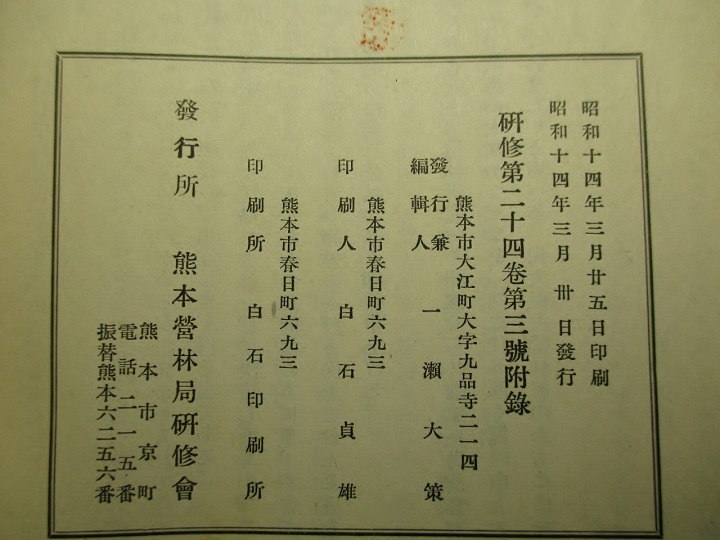 昭和十四年三月廿五日印刷
昭和十四年三月卅日發行
硏修第二十四卷第三號附錄
熊本市大江町大字九品寺二一四
發行兼
編輯人 一瀬大策
熊本市春日町六九三
印刷人 白石貞雄
熊本市春日町六九三
印刷所 白石印刷所
發行所 熊本營林局硏修會
熊本市京町
電話二一五番
振替熊本六二五六番